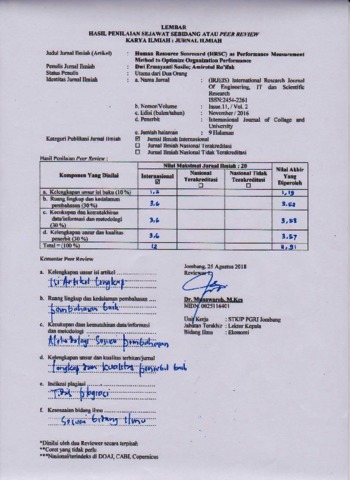 LEMBAR
HASIL PENILAIAN SEJAWAT SEBIDANG ATAU PEER REVIEW
KARYA ILMIAH : JURNAL ILMIAH
Judul Jurnal Ilmiah (Artikel) : Human Resource Scorecard (HRSC) as Performance Measurement
Method to Optimize Organization Performance
Penulis Jurnal Ilmiah : Dwi Ermayanti Susilo; Amirotul
Status Penulis : Utama dari Dua Orang
Identitas Jurnal Ilmiah : a. Nama Jurnal : (IRJEIS) International Research Journal
Of Engineering, IT dan Scientific
Research
ISSN:2454-2261
b. Nomor/Volume : Issue 11, / Vol. 2
c. Edisi (bulan/tahun) : November / 2016
d. Penerbit : International Journal of College and
University
e. Jumlah halaman : 9 Halaman
Kategori Publikasi Jurnal Ilmiah : Jurnal Ilmiah Internasional
Jurnal Ilmiah Nasional Terakreditasi
Jurnal Ilmiah Nasional Tidak Terakreditasi
Hasil Penilaian Peer Review :
Komponen Yang Dinilai
Nilai Maksimal Jurnal Ilmiah : 20
Internasional
Nasional Terakreditasi
Nasional Tidak Terakreditasi
Nilai Akhir Yang Diperoleh
a. Kelengkapan unsur isi buku (10%) 1,2 1,19
b. Ruang lingkup dan kedalaman
pembahasan (30%) 3,6
c. Kecukupan dan kemutakhiran
data/informasi dan metodologi
(30%) 3,6 3,58
d. Kelengkapan unsur dan kualitas
penerbit (30%) 3,6 3,57
Total = (100 %) 12
Komentar Peer Review
Jombang, 25 Agustus 2018
Reviewer
a. Kelengkapan unsur isi artikel
Isi Artikel lengkap
b. Ruang lingkup dan kedalaman pembahasan
pembahasan baik
Dr. Munawaroh, M.Kes
NIDN 0025116401
c. Kecukupan dan kemutakhiran data/informasi
dan metodologi
Metodologi sesuai pembahasan
Unit Kerja : STKIP PGRI Jombang
Jabatan Terakhir : Lektor Kepala
Bidang Ilmu : Ekonomi
d. Kelengkapan unsur dan kualitas terbitan/jurnal
lengkap dan kualitas penerbit baik
e. Indikasi plagiasi
Tidak plagiasi
f. Kesesuaian bidang ilmu
Sesuai bidang ilmu
*Dinilai oleh dua Reviewer secara terpisah
**Coret yang tidak perlu
***Nasional/terindeks di DOAJ, CABI, Copernicus